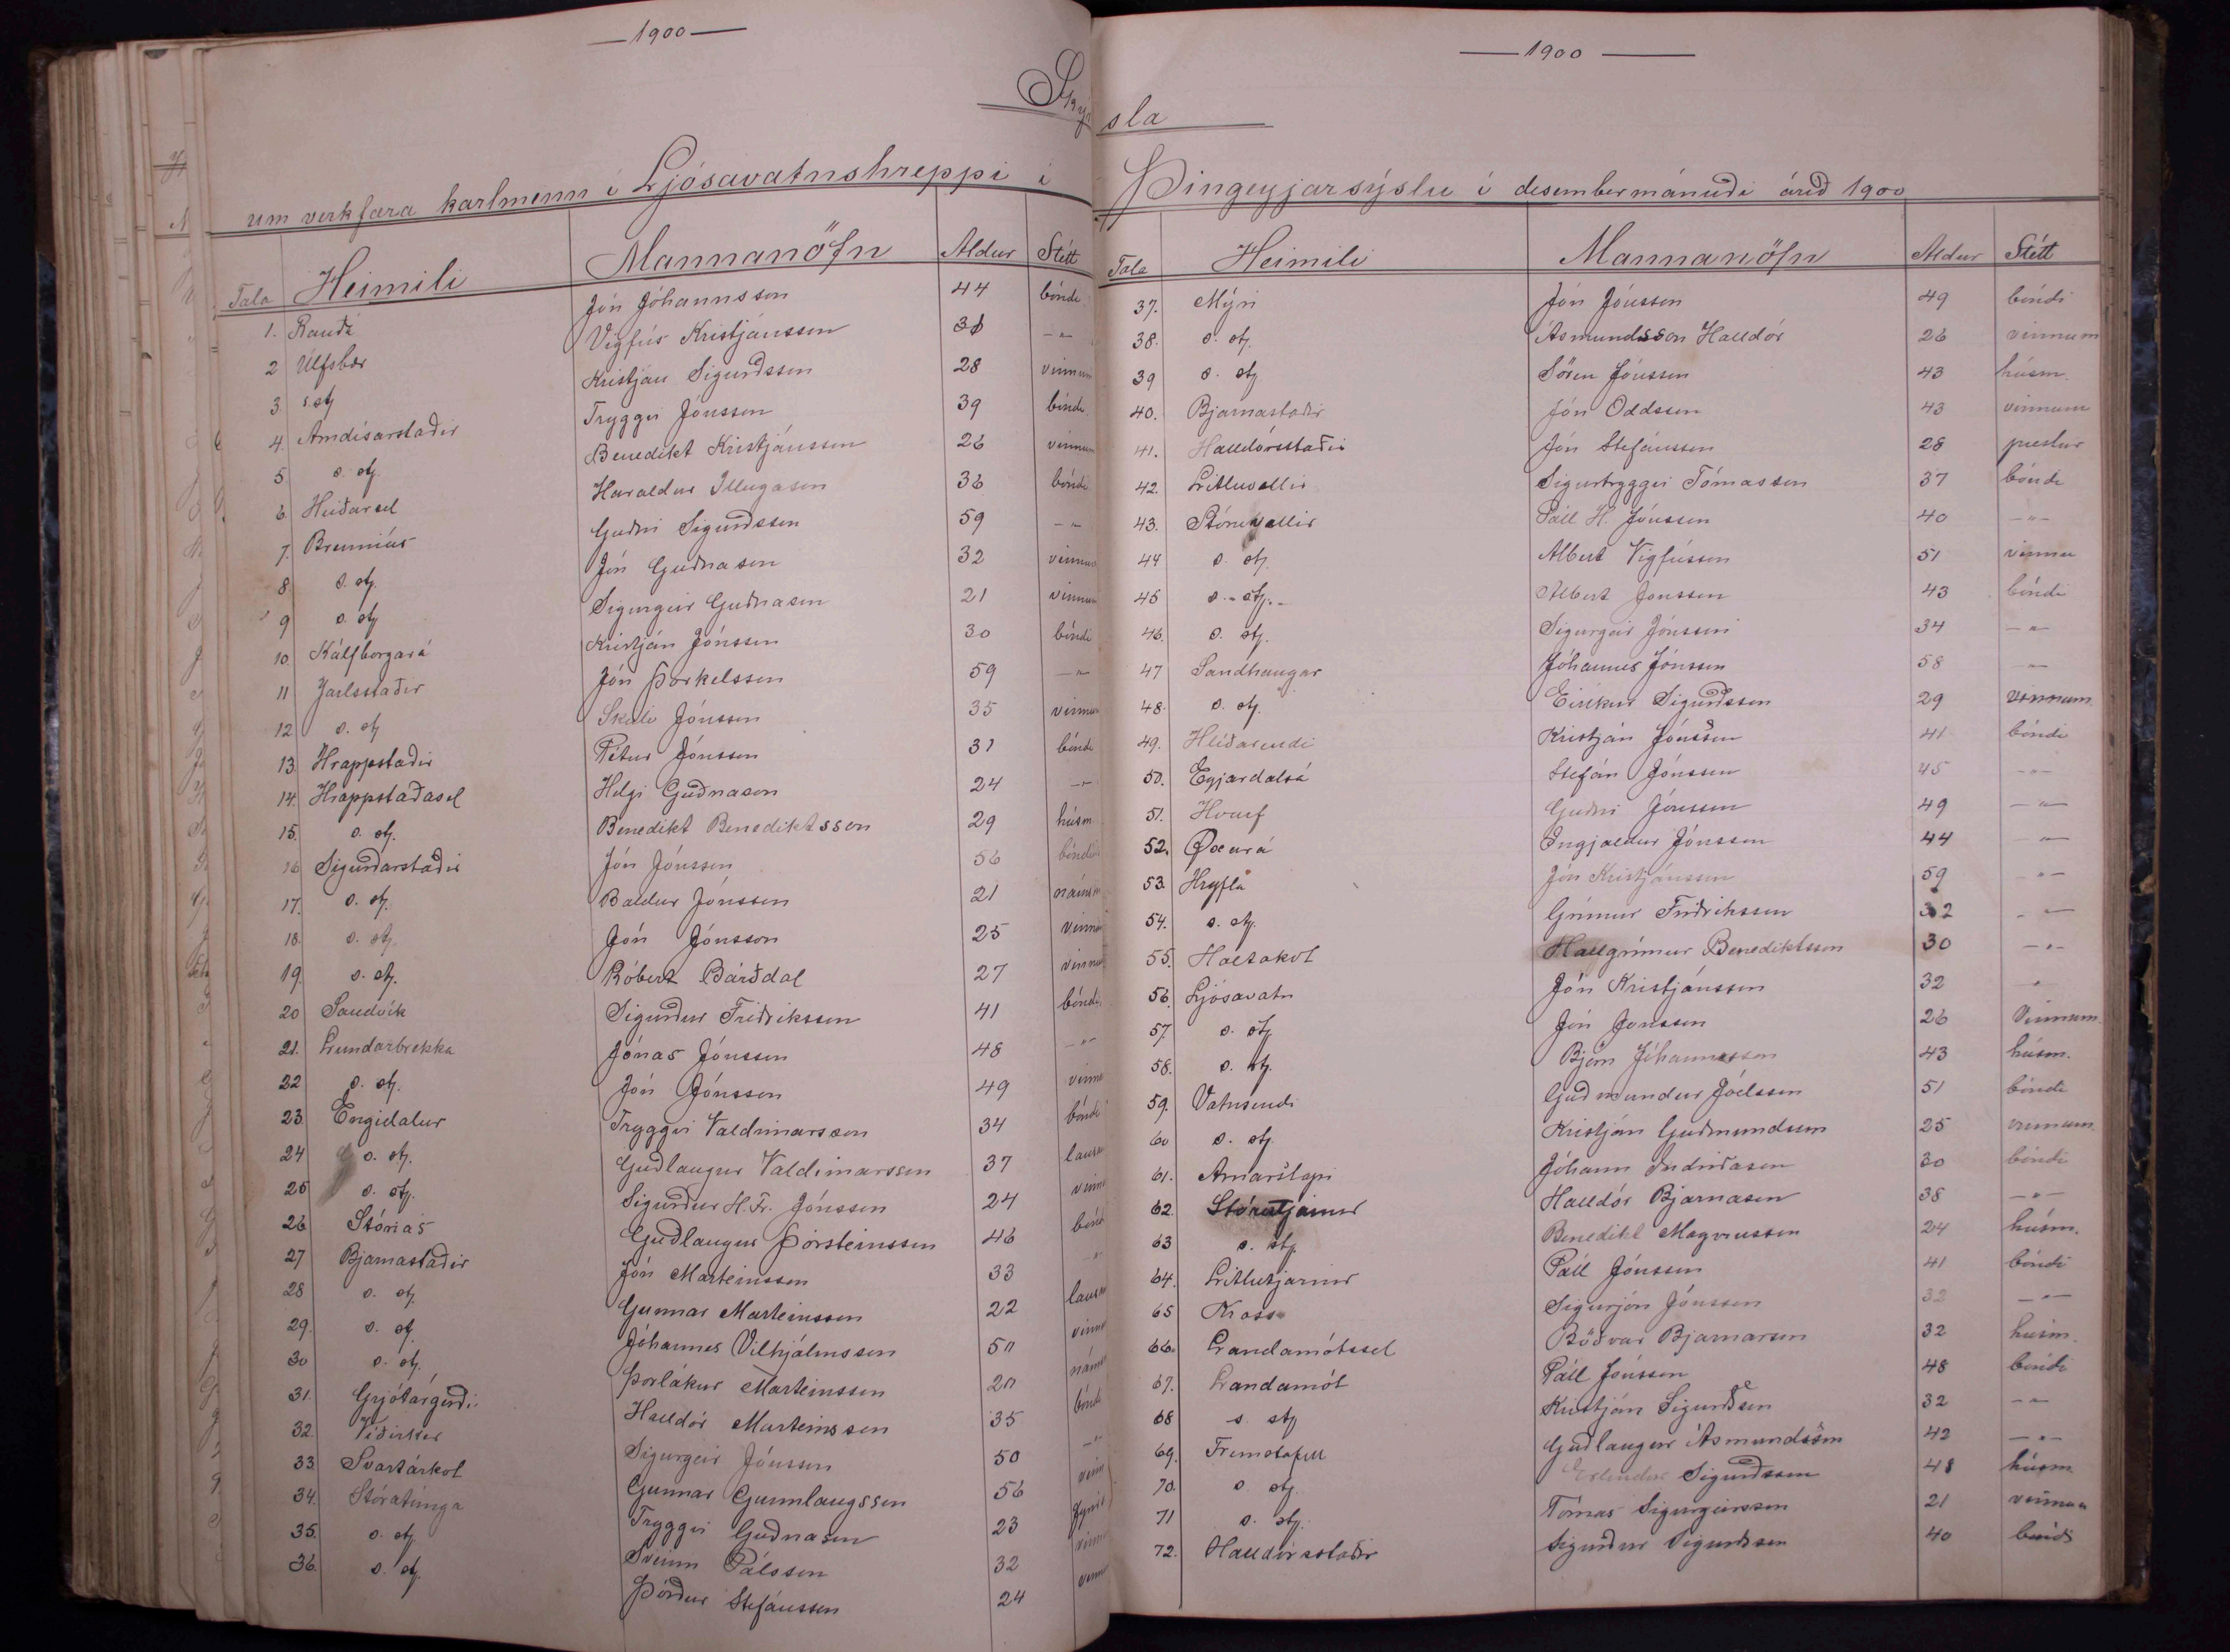 —1900—
Skýr
um verkfæra karlmenn í Ljósavatnshreppi í
Tala Heimili Mannanöfn Aldur Stétt
1. Rauðá Jón Jóhannsson 44 bóndi
2 Úlfsbær Vigfús Kristjánsson 38 -"-
3. s. st. Kristján Sigurðsson 28 vinnum
4. Arndísarstaðir Tryggvi Jónsson 39 bóndi
5 s. st. Benedikt Kristjánsson 26 vinnum
6. Heiðarsel Haraldur Illugason 36 bóndi
7. Brenniás Guðni Sigurðsson 59 -"-
8 s. st. Jón Guðnason 32 vinnum
9 s. st. Sigurgeir Guðnason 21 vinnum
10. Kálfborgará Kristján Jónsson 30 bóndi
11 Jarlsstaðir Jón Þorkelsson 59 -"-
12 s. st. Skúli Jónsson 35 vinnum
13. Hrappstaðir Pétur Jónsson 31 bóndi
14. Hrappstaðasel Helgi Guðnason 24 -"-
15. s. st. Benedikt Benediktsson 29 húsm
16 Sigurðarstaðir Jón Jónsson 56 bóndi
17. s. st. Baldur Jónsson 21 námsm
18. s. st. Jón Jónsson 25 vinnu
19. s. st. Róbert Bárðdal 27 vinnu
20 Sandvík Sigurður Friðriksson 41 bóndi
21. Lundarbrekka Jónas Jónsson 48 -"-
22 s. st. Jón Jónsson 49 vinnu
23. Engidalur Tryggvi Valdimarsson 34 bóndi
24 s. st. Guðlaugur Valdimarsson 37 lausa
25 s. st. Sigurður H. Fr. Jónsson 24 vinnu
26 Stórás Guðlaugur Þórsteinsson 46 bónd
27 Bjarnastaðir Jón Marteinsson 33 "
28 s. st. Gunnar Marteinsson 22 lausa
29. s. st. Jóhannes Vilhjálmsson 50 vinnu
30 s. st. Þorlákur Marteinsson 20 náms
31. Grjótárgerði Halldór Marteinsson 35 bóndi
32. Víðirker Sigurgeir Jónsson 50 -"-
33. Svartárkot Gunnar Gunnlaugsson 56 vinn
34. Stóratunga Tryggvi Guðnason 23
35. s. st. Sveinn Pálsson 32 vinnu
36. s. st. Þórður Stefánsson 24 vinnu
—1900—
sla
Þingeyjarsýslu í desembermánuði árið 1900
Tala Heimili Mannanöfn Aldur Stétt
37. Mýri Jón Jónsson 49 bóndi
38. s. st. Ásmundsson Halldór 26 vinnum
39 s. st. Sören Jónsson 43 húsm.
40. Bjarnastaðir Jón Oddsson 43 vinnum
41. Halldórsstaðir Jón Stefánsson 28 prestur
42. Litluvellir Sigurtryggvi Tómasson 37 bóndi
43. Stóruvellir Páll H. Jónsson 40 -"-
44 s. st. Albert Vigfússon 51 vinnu
45 s. st. Albert Jónsson 43 bóndi
46. s. st. Sigurgeir Jónsson 34 -"-
47 Sandhaugar Jóhannes Jónsson 58 -"-
48. s. st. Eiríkur Sigurðsson 29 vinnum.
49. Hlíðarendi Kristján Jónsson 41 bóndi
50. Eyjardalsá Stefán Jónsson 45 -"-
51. Hvarf Guðni Jónsson 49 -"-
52. Öxará Ingjaldur Jónsson 44 "
53. Hryfla Jón Kristjánsson 59 -"-
54. s. st. Grímur Friðriksson 32 -"-
55. Holtakot Hallgrímur Benediktsson 30 -"-
56. Ljósavatn Jón Kristjánsson 32 "
57. s. st. Jón Jónsson 26 Vinnum.
58. s. st. Björn Jóhannesson 43 húsm.
59. Vatnsendi Guðmundur Jóelsson 51 bóndi
60 s. st. Kristján Guðmundsson 25 vinnum.
61. Arnarstapi Jóhann Indriðason 30 bóndi
62. Stórutjarnir Halldór Bjarnason 38 -"-
63 s. st. Benedikt Magnússon 24 húsm.
64. Litlutjarnir Páll Jónsson 41 bóndi
65 Kross Sigurjón Jónsson 32 -"-
66. Landamótssel Böðvar Bjarnarson 32 húsm.
67. Landamót Páll Jónsson 48 bóndi
68 s. st. Kristján Sigurðsson 32 -"-
69. Fremstafell Guðlaugur Ásmundsson 42 -"-
70. s. st. Erlendur Sigurðsson 48 húsm
71 s. st. Tómas Sigurgeirsson 21 vinnum
72. Halldórsstaðir Sigurður Sigurðsson 40 bóndi